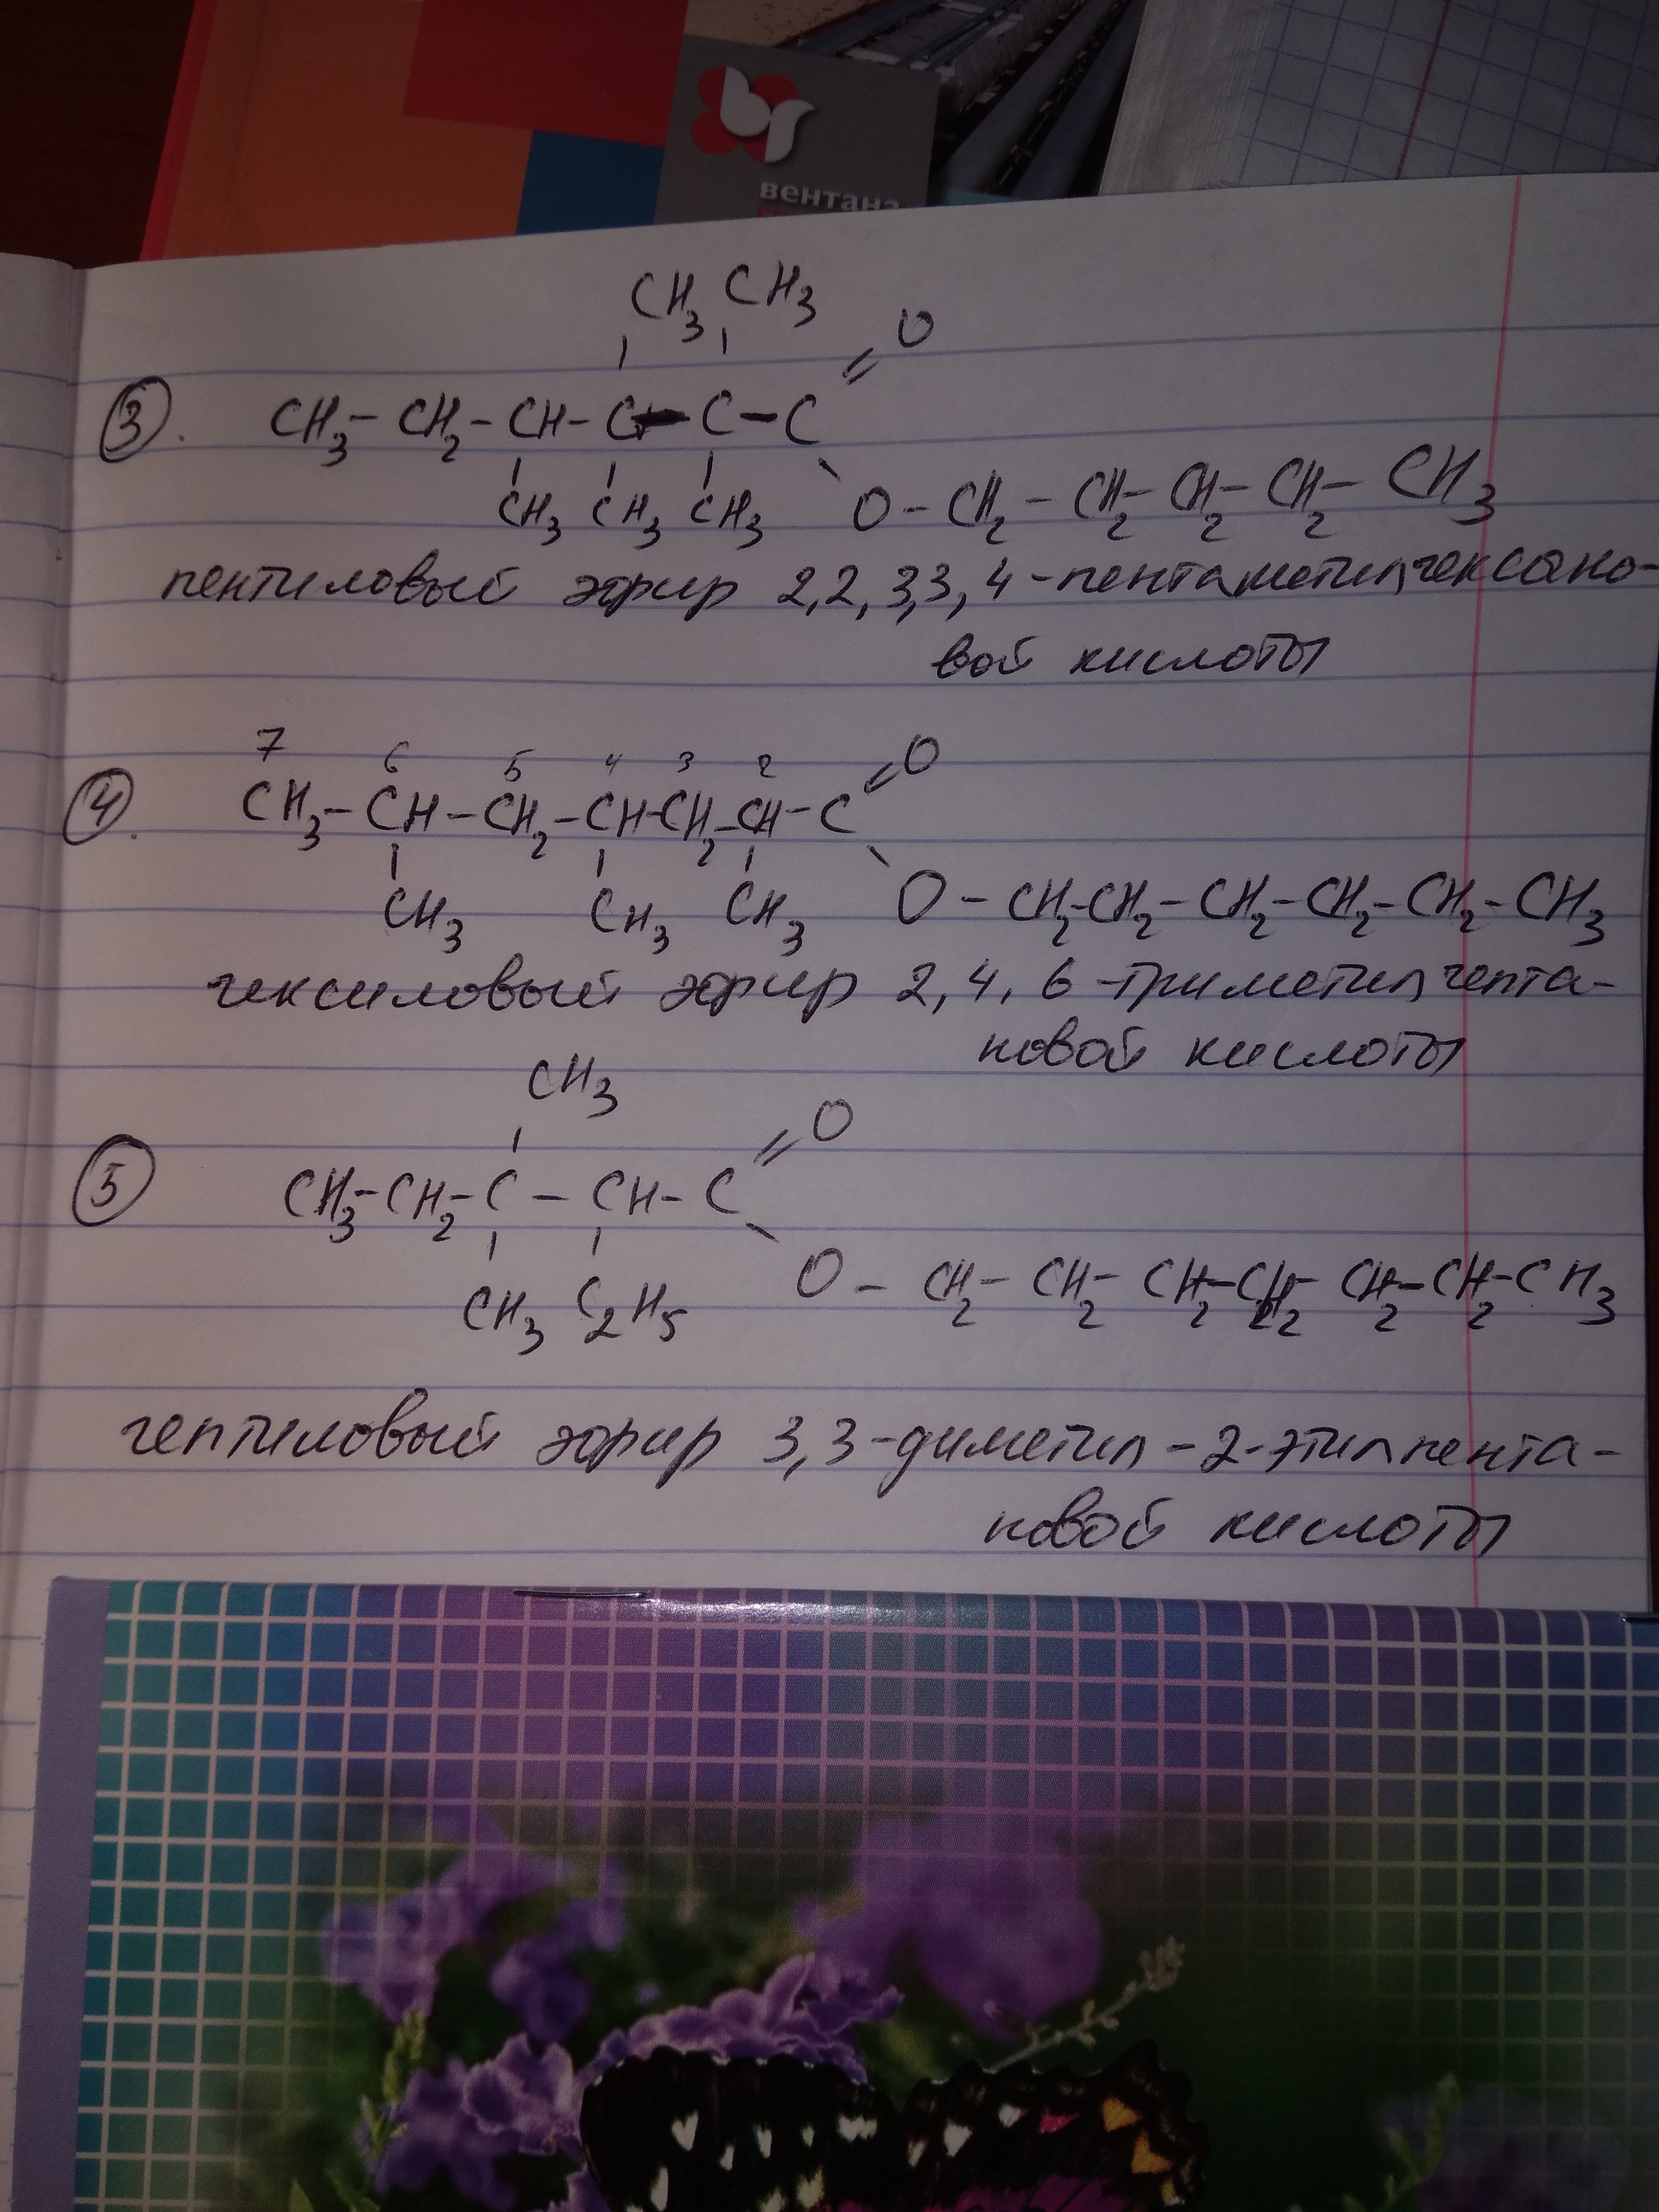 вентана
CH3 CH3
O
③. CH3 – CH2 – CH – C – C – C
CH3 CH3 CH3 O – CH2 – CH2 – CH2 – CH2 – CH3
пентиловый эфир 2,2,3,3,4-пентаметилгексано-
вой кислоты
7 6 5 4 3 2 O
④. CH3 – CH – CH2 – CH – CH2 – CH – C
CH3 CH3 CH3 O – CH2 – CH2 – CH2 – CH2 – CH2 – CH3
гексиловый эфир 2,4,6-триметилгепта-
новой кислоты
CH3
O
⑤ CH3 – CH2 – C – CH – C
CH3 C2H5 O – CH2 – CH2 – CH2 – CH2 – CH2 – CH2 – CH3
гептиловый эфир 3,3-диметил-2-этилпента-
новой кислоты